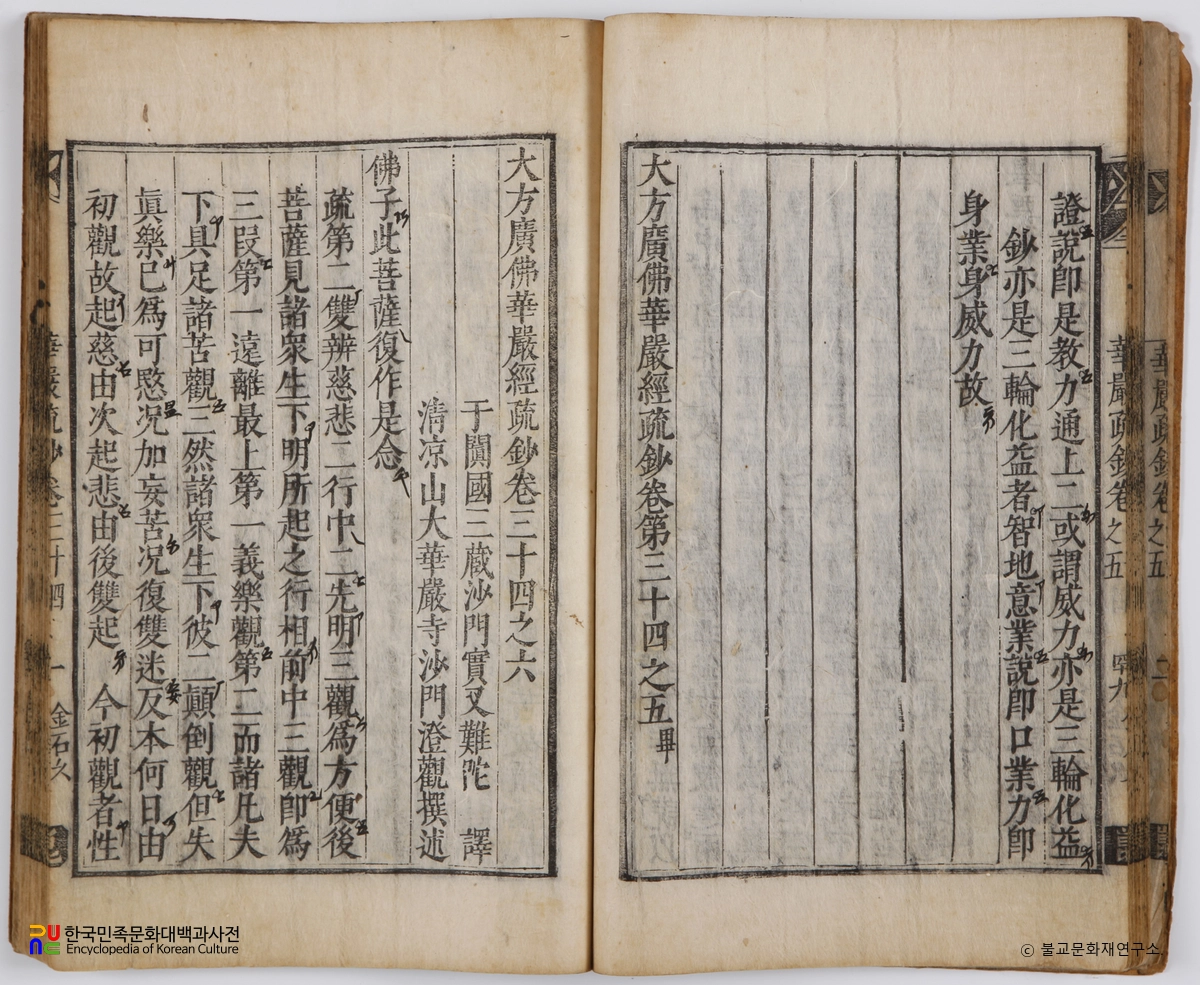 證說卽是教力通上二或謂威力亦是三輪化益
鈔亦是三輪化益者智地意業說卽口業力卽
身業身威力故
大方廣佛華嚴經疏鈔卷第三十四之五 畢
華嚴疏鈔卷之五
華嚴疏鈔卷之五
大方廣佛華嚴經疏鈔卷三十四之六
于闐國三藏沙門實叉難陀 譯
淸凉山大華嚴寺沙門澄觀撰述
佛子此菩薩復作是念
疏第二雙辨慈悲二行中二先明三觀爲方便後
菩薩見諸衆生下明所起之行相前中三觀卽爲
三段第一遠離最上第一義樂觀第二而諸凡夫
下具足諸苦觀三然諸衆生下彼二顚倒觀但失
眞樂已爲可愍况加妄苦况復雙迷反本何日由
初觀故起慈由次起悲由後雙起 今初觀者性
華嚴疏鈔卷三十四 一 金石久
한국민족문화대백과사전
Encyclopedia of Korean Culture
ⓒ 불교문화재연구소